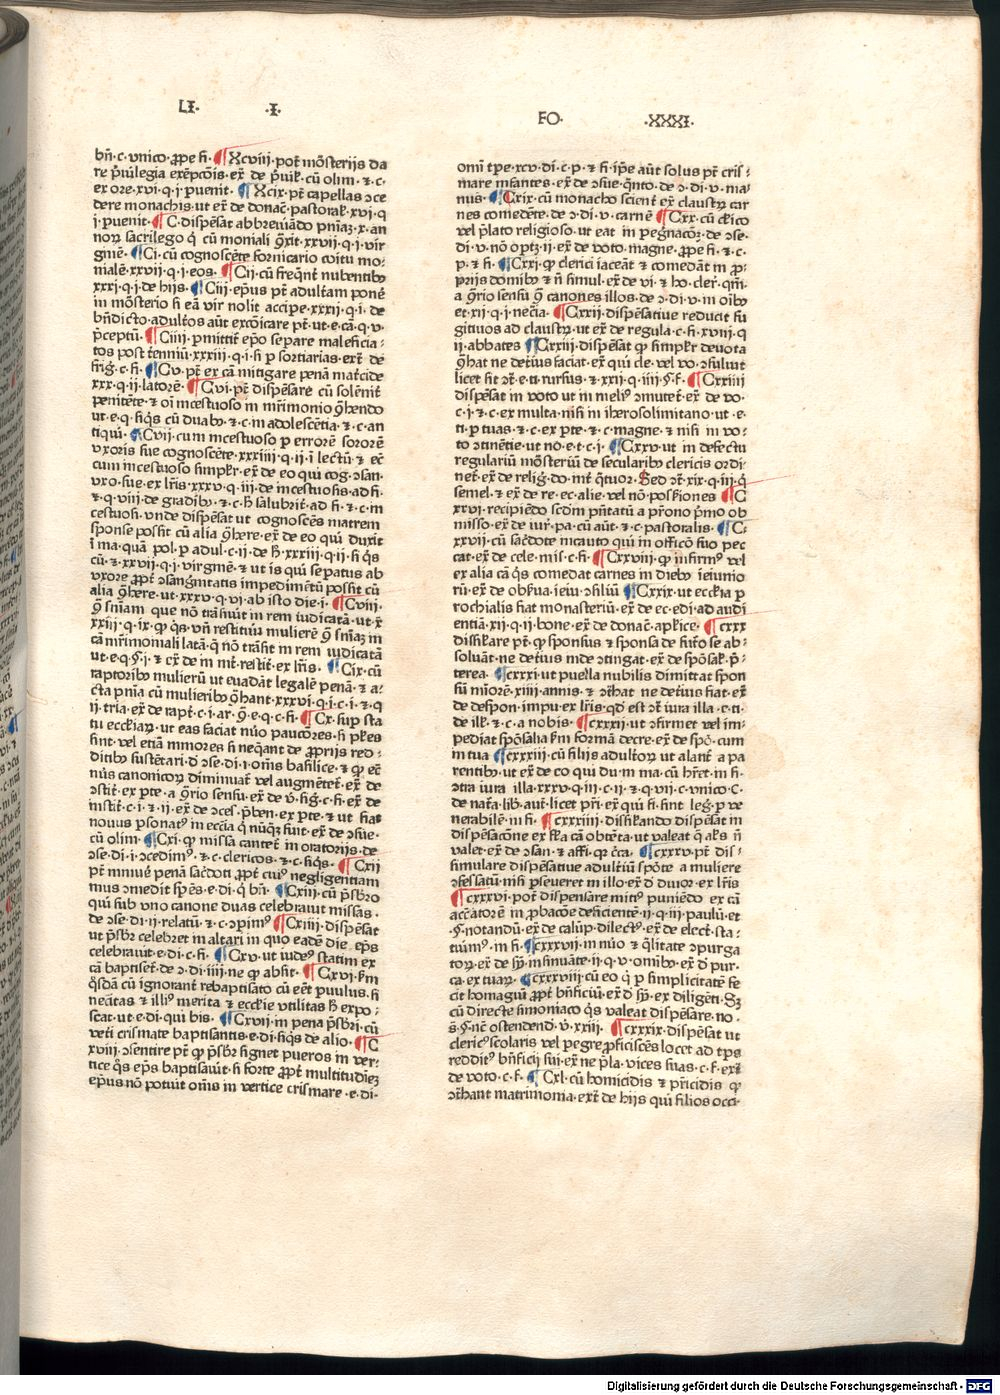 LI· ·I·
FO· ·XXXI·
bn̄·c·vnico·ꝓpe fi·¶Xcviij·pot̄ mōsterijs da
re p̄uilegia exēpcōis·ex̄ de p̄uil̄·cū olim·⁊·c·
ex ore·xvi·q·j·puenit·¶Xcix·pt̄ capellas ↄce
dere monachis·ut ex̄ de donac̄·pastoral̄·xvi·q
j·puenit·¶C·dispēsat abbreuiādo pniaꝫ·x·an
noꝝ sacrilego q̇ cū moniali ꝯxit·xxvii·q·i·vir
ginē·¶Ci·cū cognoscēte fornicario coitu mo·
nialē·xxvii·q·i·eos·¶Cij·cū freq̄nt nubentibꝰ
xxxi·q·i·de hijs·¶Ciij·ep̄us pt̄ adultam ponē
in mōsterio si eā vir nolit accipe·xxxij·q·i·de
bn̄dicto·adultos aūt excōicare pt̄·ut·e·cā·q·v·
p̄ceptū·¶Ciiij·pmittit ep̄o separe maleficia·
tos post tēnniū·xxxiii·q·i·si p sortiarias·exr̄ de
friḡ·c·fi·¶Cv·pt̄ ex cā mitigare penā mat̄cide
xxx·q·ii·latorē·¶Cvi·pt̄ dispēsare cū solēnit̄
penitēte·⁊ oī incestuoso in mr̄imonio ꝯhendo
ut·e·q·siq̇s cū duabꝰ·⁊·c·in adolescētia·⁊·c·an
tiqui·¶Cvij·cum incestuoso p errorē sororē
vxoris sue cognoscēte·xxxiiij·q·ij·ī lectū·⁊ ec̄
cum incestuoso simpl̄r·ex̄ de eo qui cog·ↄsan·
vxo·sue·ex lr̄is·xxxv·q·iii·de incestuosis·ad fi·
⁊·q·viii·de gradibꝰ·⁊·c·h̄ salubrit̄·ad fi·⁊·c·in
cestuosi·vnde dispēsat ut cognoscēs matrem
sponse possit cū alia ꝯhere·ex̄ de eo qui duxit
ī ma·quā pol·p adul·c·ii·de h̄·xxxiii·q·ii·si q̇s
cū·⁊·xxvii·q·i·virginē·⁊ ut is qui sepatus ab
vxore ꝓpt̄ ↄsanḡnitatis impedimētū possit cū
alia ꝯhere·ut·xxxv·q·vi·ab isto die·i·¶Cviii·
ꝯ sn̄iam que nō trāsiuit in rem iudicatā·ut·x̄
xxiij·q·ix·ꝙ q̇s·vn̄ restituiū mulierē ꝯ sn̄iaꝫ in
cā mr̄imoniali latā·q̄ nō trāsit in rem iudicatā
ut·e·q·§·i·⁊ ex̄ de in int̄·restit̄·ex lr̄is·¶Cix·cū
raptoribꝰ mulierū ut euadāt legalē penā·⁊ a/
cta pnīa cū mulieribꝰ ꝯhant·xxxvi·q·i·c·i·⁊·q
ij·tria·ex̄ de rapt̄·c·i·ar·ꝯ·e·q·c·fi·¶Cx·sup sta
tu eccl̄iaꝝ·ut eas faciat mīo paucōres·si pl̄es
sint·vel etiā minores si neq̄ant de ꝓprijs red·
ditibꝰ sustētari·d·ↄse·di·i·om̄s basilice·⁊ ꝙ ec̄
nūs canonicoꝝ diminuat̄ vel augmētet̄·ex̄ de
ↄstit̄·ex pte·a ꝯrio sensu·ex̄ de v̄·sig·c·fi·ex̄ de
instit̄·c·i·⁊·ii·ex̄ de ↄces·p̄ben·ex pte·⁊ ut fiat
nouus psonatꝰ in eccīa q̇ nūqꝫ fuit·ex̄ de ↄsue·
cū olim·¶Cxi·ꝙ missa cantet̄ in oratorijs·de
ↄse·di·i·ↄcedimꝰ·⁊·c·clericos·⁊·c·siq̇s·¶Cxij
pt̄ minuē penā sac̄dot ꝓpt̄ cuiꝰ negligentiam
mus ↄmedit sp̄es·e·di·q̇ bn̄·¶Cxiii·cū p̄sbr̄o
qui sub vno canone duas celebrauit missas·
de ↄse·di·ij·relatū·⁊·c·ↄpimꝰ¶Cxiiij·dispēsat
ut p̄sbr̄ celebret in altari in quo eadē die ep̄s
celebrauit·e·di·c·fi·¶Cxv·ut iudeꝰ statim ex
cā baptiset̄·de ↄ·di·iiii·ne ꝙ absit·¶Cxvi·ẜm
q̇sdā cū ignorant̄ rebaptisato cū eēt puulus·si
necītas ⁊ illiꝰ merita ⁊ eccl̄ie vtilitas h̄ expo·
scat·ut·e·di·qui bis·¶Cxvij·in pena p̄sbr̄i·cū
veti crismate baptisantis·e·di·siq̇s de alio·¶C
xviij·ↄsentire pt̄ ꝙ p̄sbr̄ signet pueros in ver·
tice q̇s ep̄s baptisauit·si forte ꝓpt̄ multitudīeꝫ
ep̄us nō potuit om̄s in vertice crismare·e·di·
om̄i tp̄e·xcv·di·c·p·⁊ fi·ip̄e aūt solus pt̄ cris·
mare infantes·ex̄ de ↄsue·q̄nto·de ↄ·di·v·ma/
nus·¶Cxix·cū monacho scient̄ ex claustꝝ car
nes comedēte·de ↄ·di·v·carnē¶Cxx·cū cl̄ico
vel p̄lato religioso·ut eat in pegnacōꝫ·de ↄse·
di·v·nō optꝫ·ij·ex̄ de voto·magne·ꝓpe fi·⁊·c·
p·⁊ fi·¶Cxxj·ꝙ clerici iaceāt ⁊ comedāt in ꝓ·
prijs domibꝰ ⁊ n̄ simul·ex̄ de vi·⁊ ho·cler̄·qm̄·
a ꝯrio sensu ꝯ canones illos·de ↄ·di·v·in oībꝰ
et·xij·q·i·necīa·¶Cxxij·dispēsatiue reducit fu
gitiuos ad claustꝝ·ut ex̄ de regula·c·fi·xviij·q
ij·abbates ¶Cxxiij·dispēsat ꝙ simpl̄r deuota
ꝯhat ne det̄ius faciat·ex̄ qui cle·vel vo·ↄsuluit
licet sit ↄt̄·e·ti·rursus·⁊·xxij·q·iiij·§·f·¶Cxxiiij
dispēsat in voto ut in meliꝰ ↄmutet̄·ex̄ de vo·
c·i·⁊·c·ex multa·nisi in iherosolimitano·ut·e·
ti·p tuas·⁊·c·ex pte·⁊·c·magne·⁊ nisi in vo·
to ↄtinētie·ut no·e·t·c·i·¶Cxxv·ut in defectu
regulariū mōsteriū de secularibꝰ clericis ordi·
net̄·ex̄ de relig·do·int̄ q̄tuor·Sed ↄt̄·xix·q·iij·q̇
semel·⁊ ex̄ de re·ec·alie·vel nō·posſiones ¶C
xxvi·recipiēdo scd̄m pn̄tatū a pr̄ono p̄mo ob
misso·ex̄ de iur̄·pa·cū aūt·⁊·c·pastoralis·¶C·
xxvii·cū sac̄dote incauto qui in officō suo pec
cat·ex̄ de cele·mis·c·fi·¶Cxxviij·ꝙ infirmꝰ vel
ex alia cā q̇s comedat carnes in diebꝰ ieiunio
rū·ex̄ de obs̄ua·ieiu·ↄsiliū¶Cxxix·ut eccl̄ia p
rochialis fiat monasteriū·ex̄ de ec·edi·ad audi
entiā·xij·q·ij·bone·ex̄ de donac̄·apl̄ice·¶cxxx
dissil̄are pt̄·ꝙ sponsus ⁊ sponsa de fut̄o se ab·
soluāt·ne det̄ius inde ↄtingat·ex̄ de spōsal̄·p̄·
terea·¶cxxxi·ut puella nubilis dimittat spon
sū miōrem·xiiij·annis·⁊ ↄt̄hat ne det̄ius fiat·ex̄
de despon·impu·ex lr̄is·qd̄ est ↄt̄ iura illa·e·ti·
de ill̄·⁊·c·a nobis·¶cxxxij·ut ↄfirmet vel im·
pediat spōsalia ẜm formā decre·ex̄ de spō·cum
in tua ¶cxxxiii·cū filijs adultoꝝ ut alant̄ a pa
rentibꝰ·ut ex̄ de eo qui du·in ma·cū hr̄et·in fi·
ↄtra iura illa·xxxv·q·iii·c·ij·⁊·q·vij·c·vnico·C·
de nat̄a·lib·aut̄·licet pr̄i·ex̄ qui fi·sint leg·p ve
nerabilē·in fi·¶cxxxiiij·dissil̄ando dispēsat in
dispēsacōne ex fl̄a cā obtēta·ut valeat q̄ al̄s n̄
valet·ex̄ de ↄsan·⁊ affi·qꝛ cc̄a·¶cxxxv·pt̄ dis·
simulare dispēsatiue adult̄iū spōte a muliere
ↄfessatū·nisi pseueret in illo·ex̄ d̄ diuor·ex lr̄is
¶cxxxvi·pot̄ dispensare mitiꝰ puniēdo ex cā
acc̄atorē in ꝓbacōe deficientē·ij·q·iii·paulū·et
·§·notandū·ex̄ de calup̄·dilectꝰ·ex̄ de elect̄·sta·
tuimꝰ·in fi·¶cxxxvij·in mīo ⁊ q̄litate ↄpurga
toꝝ·ex̄ de sy̅·insinuāte·ij·q·v·omibꝰ·ex̄ d̄ pur·
ca·ex tuaꝝ·¶cxxxviij·cū eo q̇ p simplicitatē fe
cit homagiū ꝓpt̄ bn̄ficiū·ex̄ d̄ sy̅·ex diligēti·Sꝫ
cū directe simoniaco q̇s valeat dispēsare·no·
s̄·§·nē ostendend̄·v̄·xxiij·¶cxxxix·dispēsat ut
clericꝰscolaris vel pegre ꝓficiscēs locet ad tp̄s
redditꝰ bn̄ficij sui·ex̄ ne p̄la·vices suas·c·f·exr̄
de voto·c·f·¶Cxl·cū homicidis ⁊ pr̄icidis ꝙ
ↄt̄hant matrimonia·exr̄ de hijs qui filios occi·
Digitalisierung gefördert durch die Deutsche Forschungsgemeinschaft - DFG